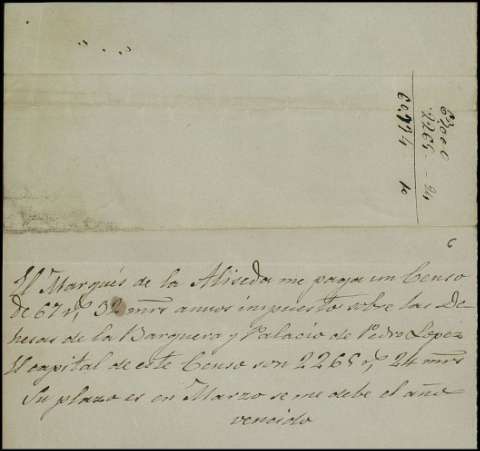 El Marqués de la Aliseda me paga un Censo
de 67 rs, 32 mrs anuos impuesto sobre las De-
hesas de la Barquera y Palacio de Pedro Lopez
El capital de este Censo son 2268 rs, 24 mrs
Su plazo es en Marzo se me debe el año
vencido